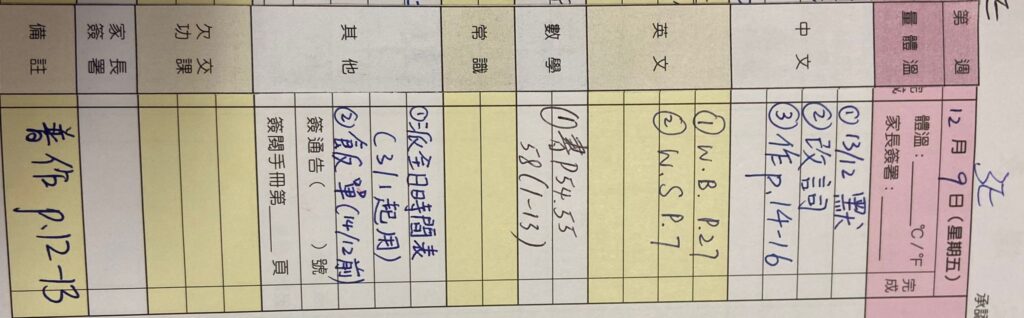 第 週
12月9日(星期五)
量體溫
體溫:____°C/°F
家長簽署:____
完成
中文
①13/12 默
②改詞
③作p.14-16
英文
① W.B. P.27
② W.S P.7
數學
①書P54.55
58(1-13)
常識
其他
①派全日時間表
(3/1起用)
②飯單(14/12前)
簽通告( )號
簽閱手冊第____頁
欠交功課
家長簽署
備註
普作 p.12-13